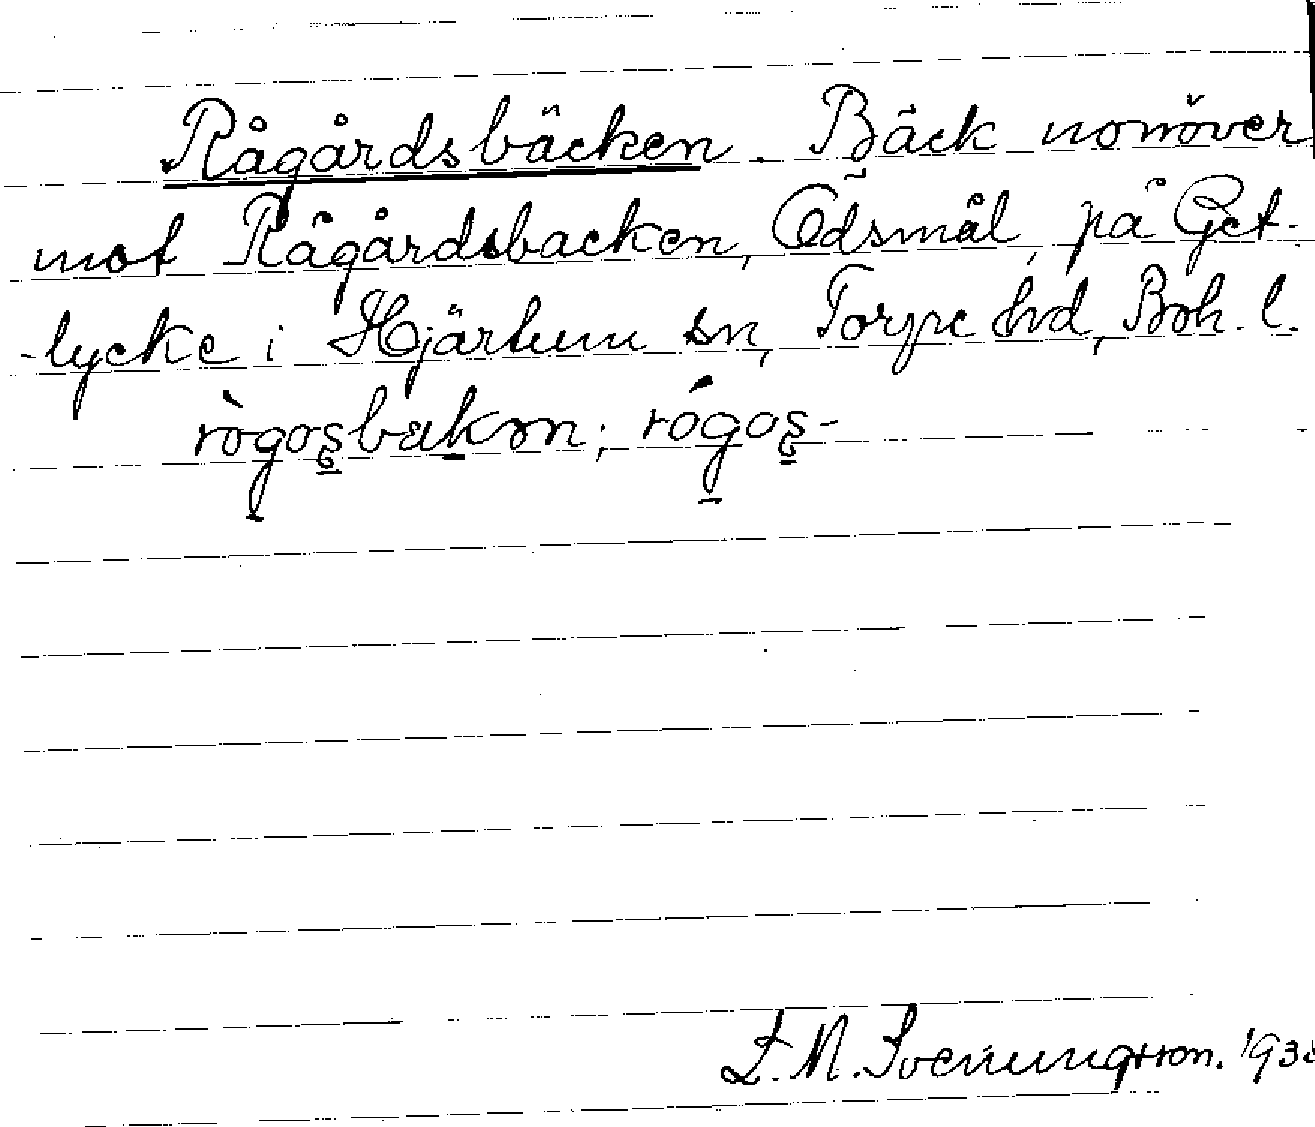 Rågårdsbäcken. Bäck norröver
mot Rågårdsbacken, Ödsmål, på Get-
-lycke i Hjärtum sn, Torpe hd, Boh. l.
rògos̱bækən; rógos̱-
E. M. Svenungsson. 193